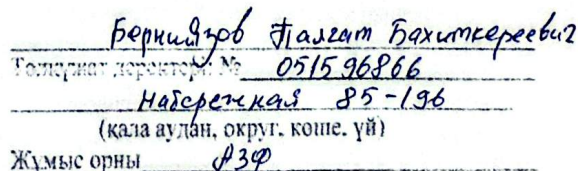 Берниязов Талгат Бахиткереевич
Төлқұжат деректері № 051596866
Набережная 85-196
(қала аудан, округ, көше, үй)
Жұмыс орны АЗФ